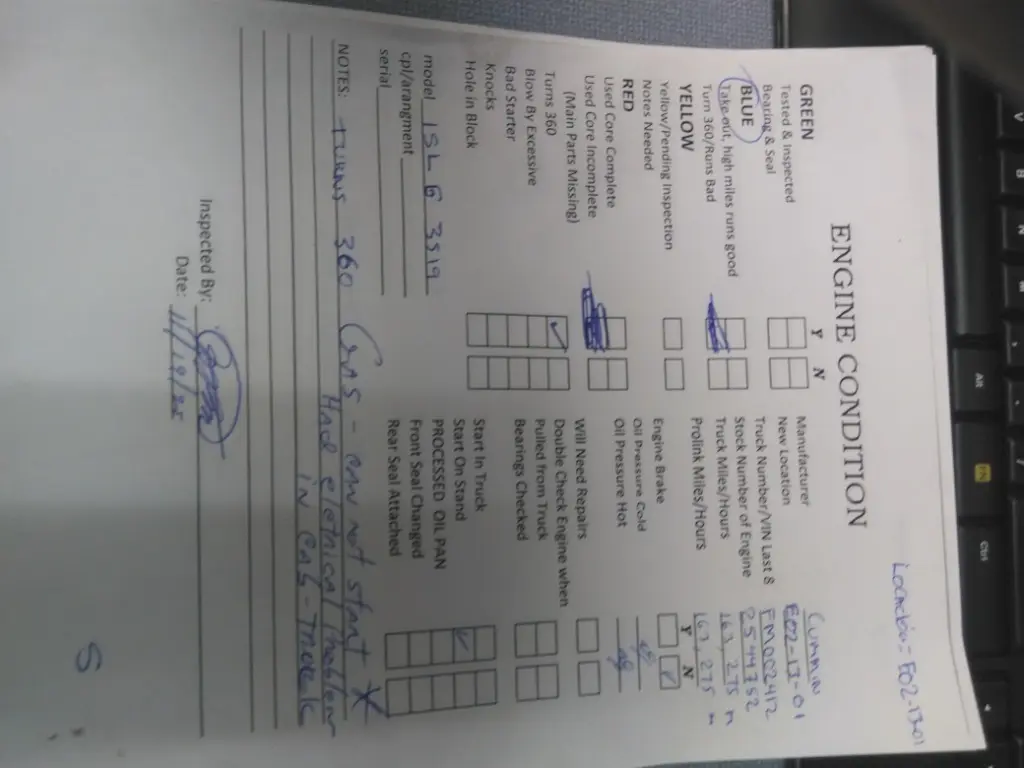 Location- E02-13-01
ENGINE CONDITION
Y N
GREEN
Tested & Inspected
Bearing & Seal
BLUE
Take out, high miles runs good
Turn 360/Runs Bad
YELLOW
Yellow/Pending Inspection
Notes Needed
RED
Used Core Complete
Used Core Incomplete
(Main Parts Missing)
Turns 360
Blow By Excessive
Bad Starter
Knocks
Hole in Block
model ISL G 3519
cpl/arangment
serial
Manufacturer CUMMIN
New Location E02-13-01
Truck Number/VIN Last 8 FM002412
Stock Number of Engine 2544752
Truck Miles/Hours 163,275 m
Prolink Miles/Hours 163,275 m
Y N
Engine Brake
Oil Pressure Cold
Oil Pressure Hot
Will Need Repairs
Double Check Engine when
Pulled from Truck
Bearings Checked
Start In Truck
Start On Stand
PROCESSED OIL PAN
Front Seal Changed
Rear Seal Attached
NOTES: TURNS 360 GAS - can not start
Have electrical Problem
in cab - Truck
Inspected By:
Date: 11/19/25
S
Alt
Fn
Ctrl